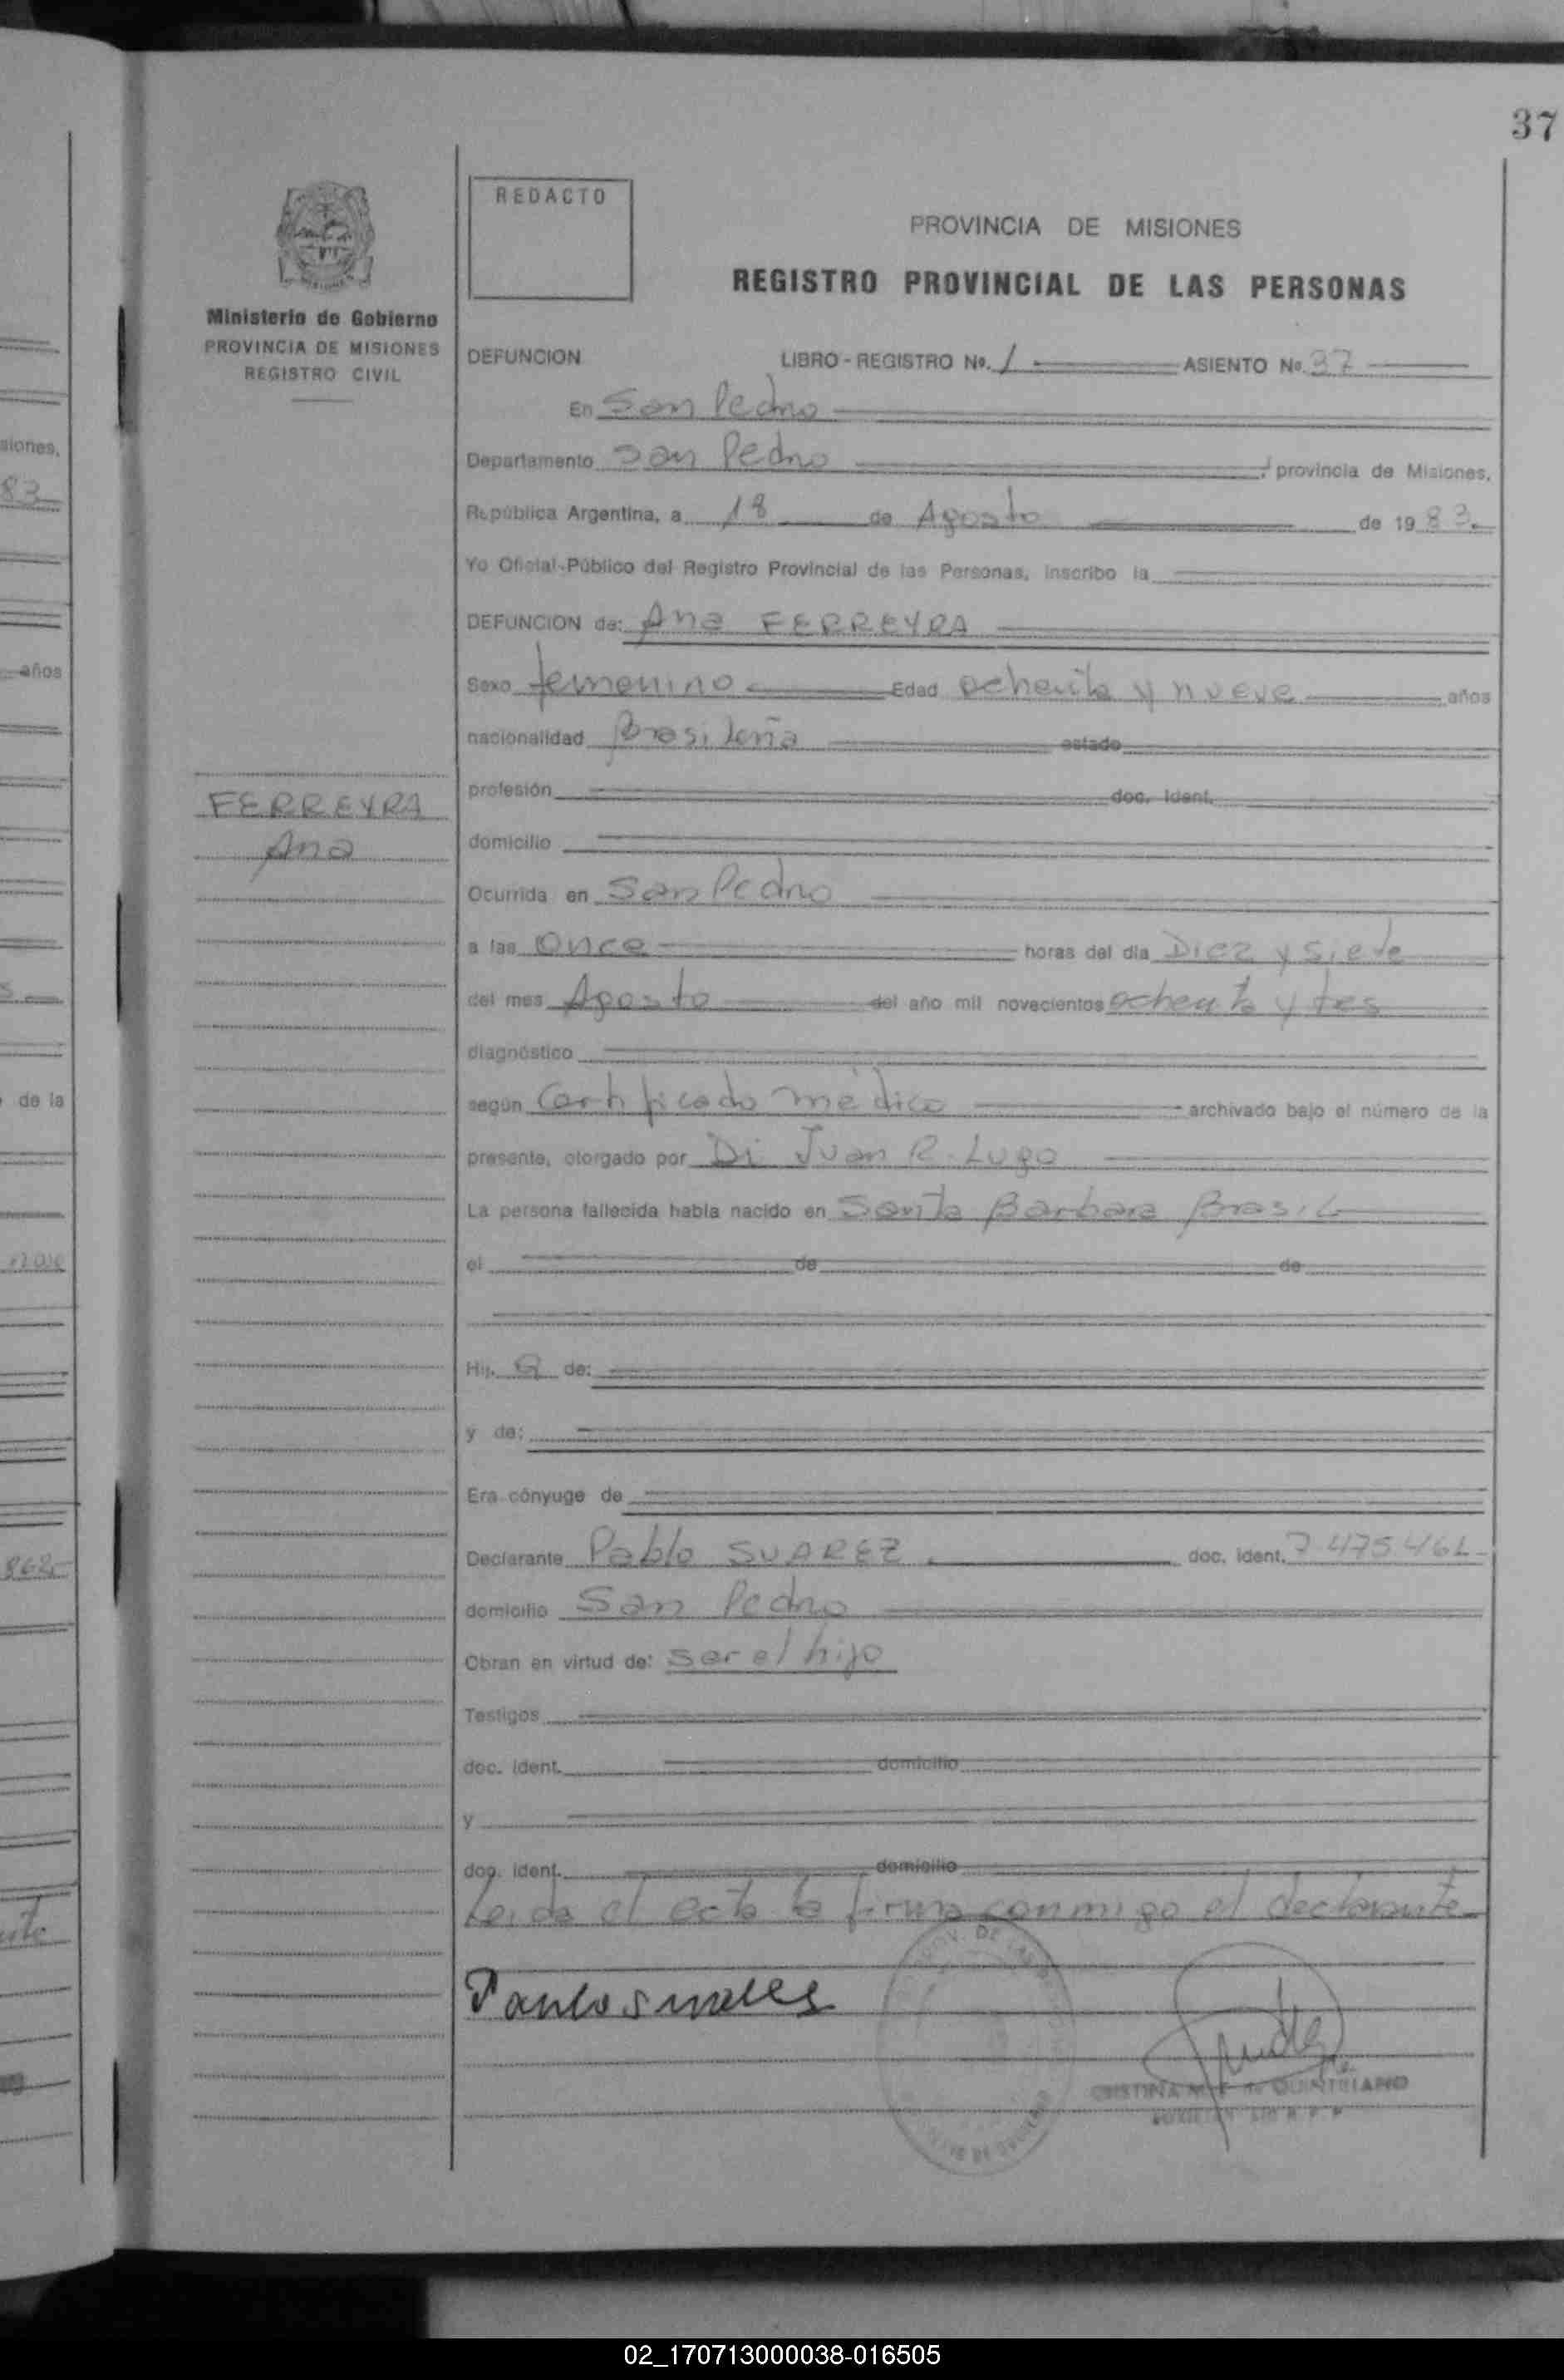 37
REDACTO
PROVINCIA DE MISIONES
REGISTRO PROVINCIAL DE LAS PERSONAS
Ministerio de Gobierno
PROVINCIA DE MISIONES
REGISTRO CIVIL
DEFUNCION LIBRO - REGISTRO No. 1 ASIENTO No. 37
En San Pedro
Departamento San Pedro , provincia de Misiones,
República Argentina, a 18 de Agosto de 1983.
Yo Oficial Público del Registro Provincial de las Personas, inscribo la
DEFUNCION de: Ana FERREYRA
Sexo femenino Edad ochenta y nueve años
nacionalidad Brasileña estado
profesión doc. ident.
FERREYRA
Ana
domicilio
Ocurrida en San Pedro
a las Once horas del día Diez y siete
del mes Agosto del año mil novecientos ochenta y tres
diagnóstico
según Certificado médico archivado bajo el número de la
presente, otorgado por Di Juan R. Lugo
La persona fallecida había nacido en Santa Barbara Brasil
el de de
Hij a de:
y de:
Era cónyuge de
Declarante Pablo SUAREZ . doc. ident.
domicilio San Pedro
Obran en virtud de: ser el hijo
Testigos
doc. ident. domicilio
y
doc. ident. domicilio
Leida el acta la firma conmigo el declarante
siones,
83
años
de la
02_170713000038-016505